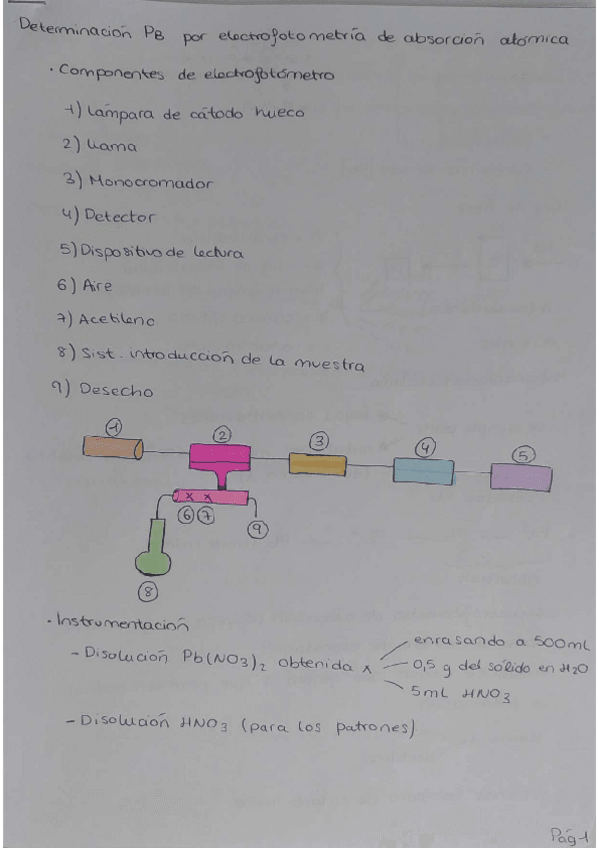 Determinación PB por electrofotometría de absorción atómica
· Componentes de electrofotómetro
1) Lámpara de cátodo hueco
2) Llama
3) Monocromador
4) Detector
5) Dispositivo de lectura
6) Aire
7) Acetileno
8) Sist. introducción de la muestra
9) Desecho
1
2
3
4
5
x x
6 7
9
8
· Instrumentación
- Disolución Pb(NO3)2 obtenida x
enrasando a 500mL
0,5 g del sólido en H2O
5mL HNO3
- Disolución HNO3 (para los patrones)
Pág-1